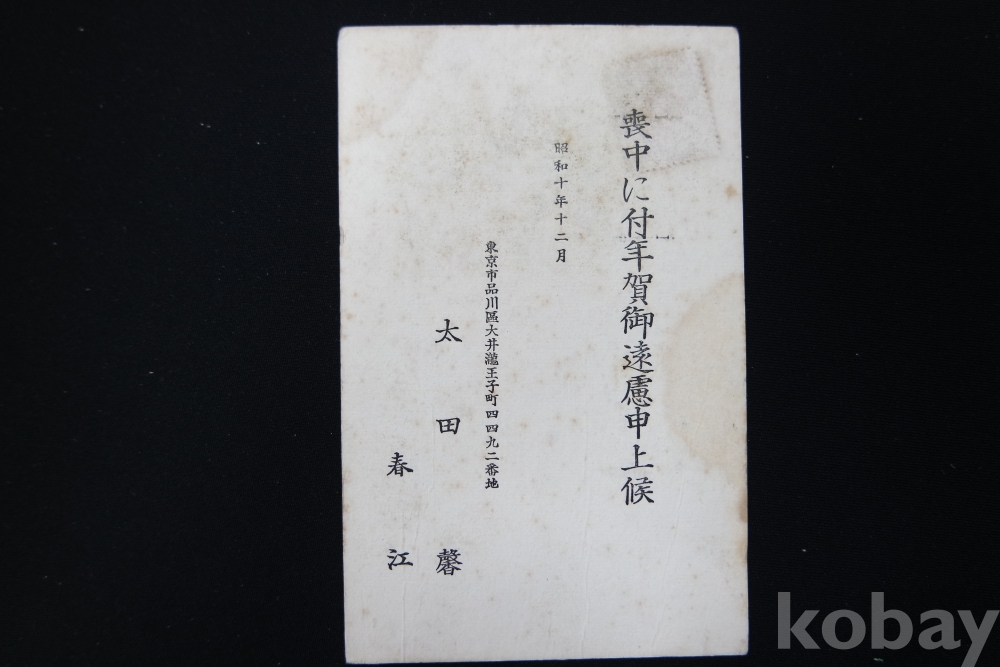 喪中に付年賀御遠慮申上候
昭和十年十二月
東京市品川區大井瀧王子町四四九二番地
太田馨
春江
kobay